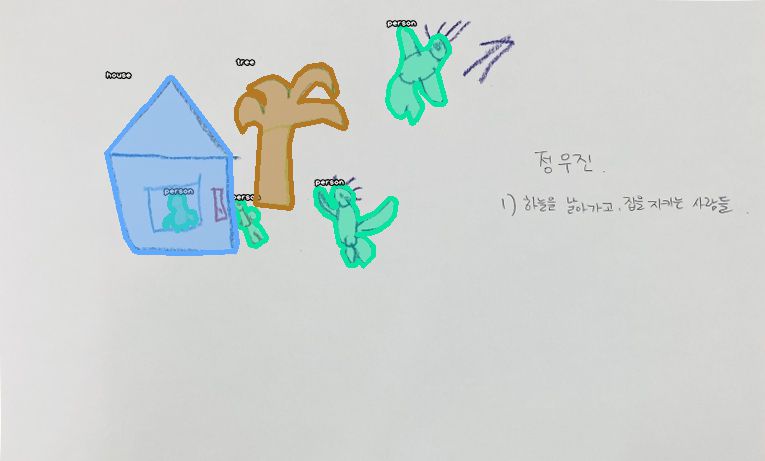 house
tree
person
person
person
person
정우진.
1) 하늘을 날아가고, 집을 지키는 사람들.